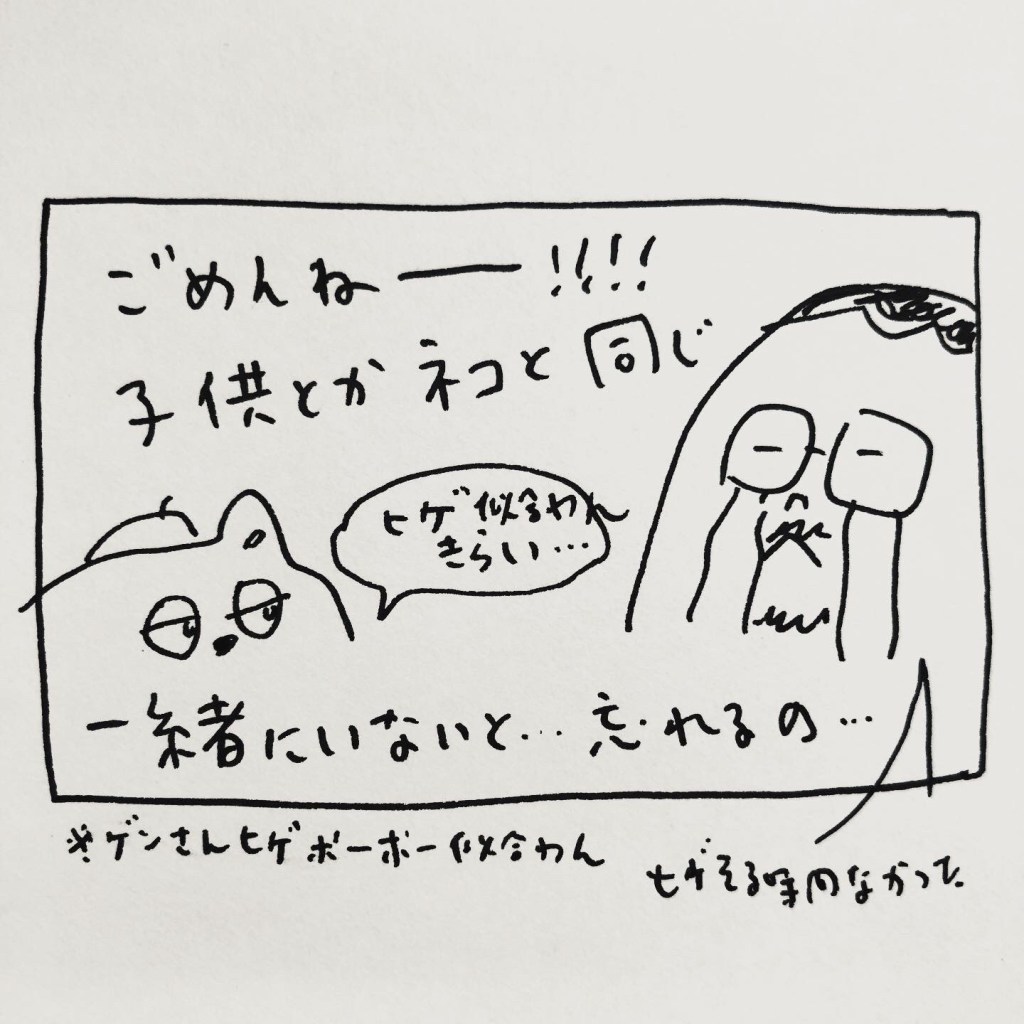 ごめんねー!!!!
子供とかネコと同じ
ヒゲ似合わん
きらい…
一緒にいないと…忘れるの…
※ゲンさんヒゲボーボー似合わん
ヒゲそる時間なかった